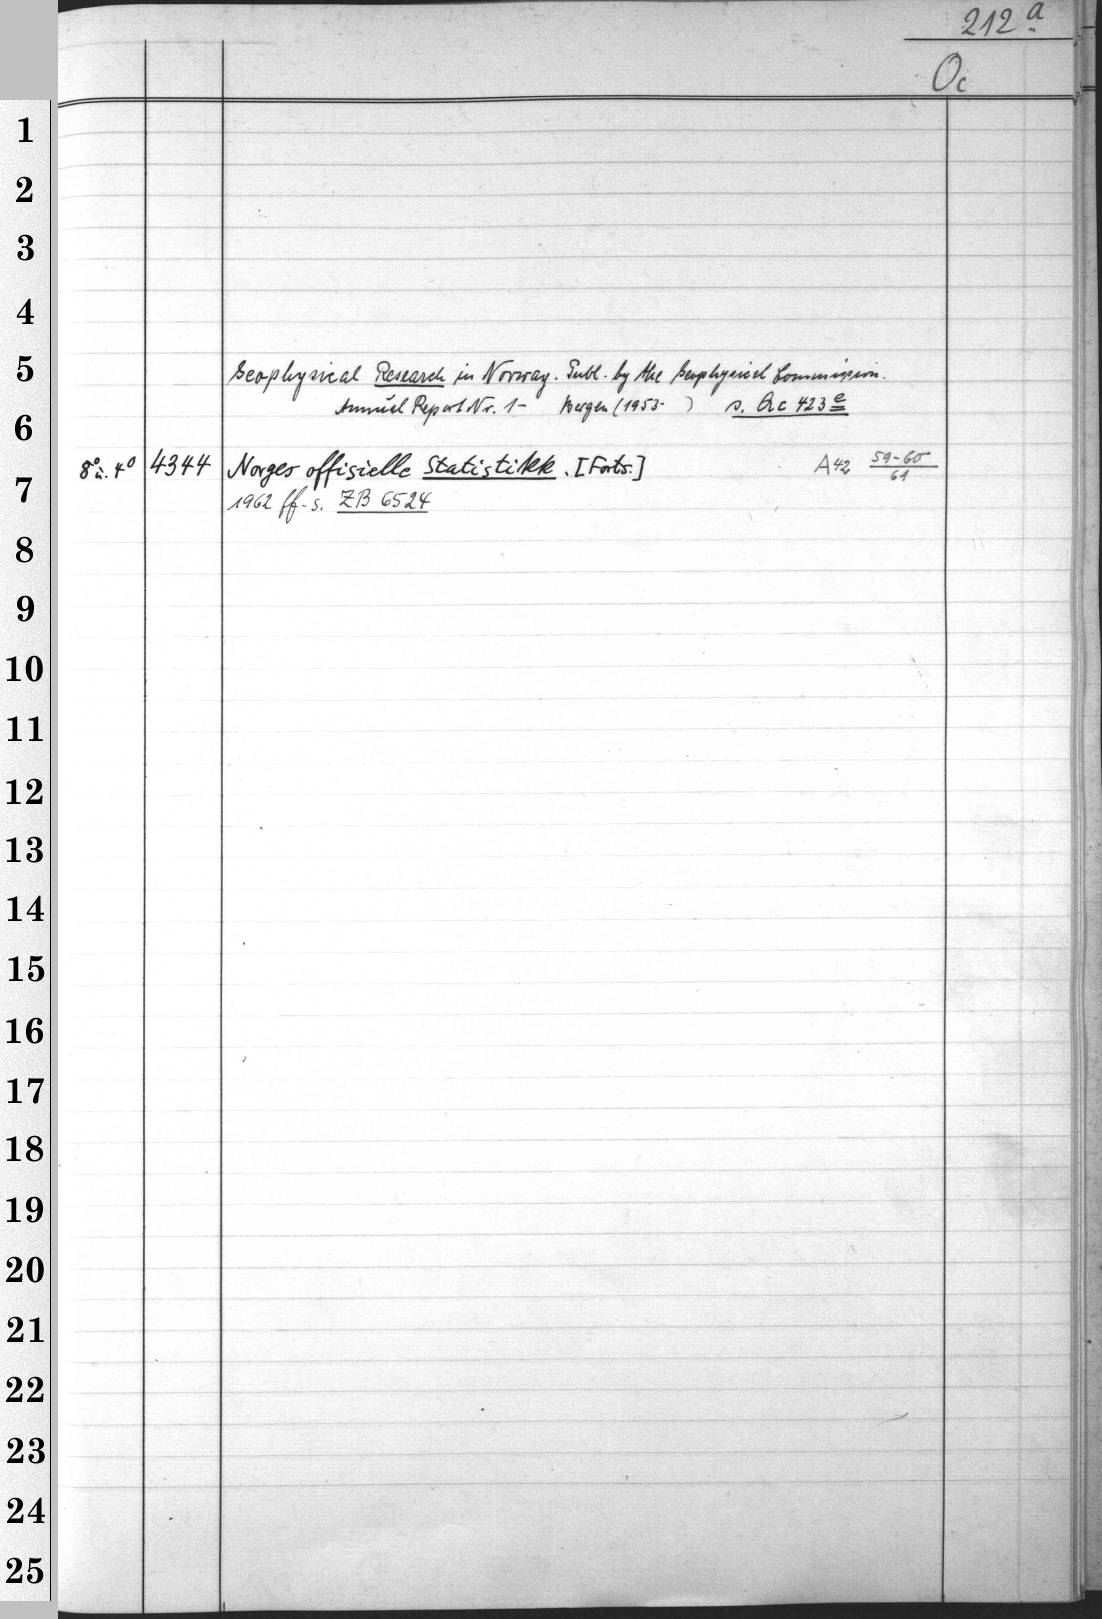 212 a
Oc
1
2
3
4
5
Geophysical Research in Norway. Publ. by the Geophysical Commission.
Annual Report Nr. 1- Bergen (1953- ) s. 423 e
6
8° u. 4° 4344 Norges offisielle Statistikk. [Forts.] A42 59-60
61
7
1962 ff. s. ZB 6524
8
9
10
11
12
13
14
15
16
17
18
19
20
21
22
23
24
25